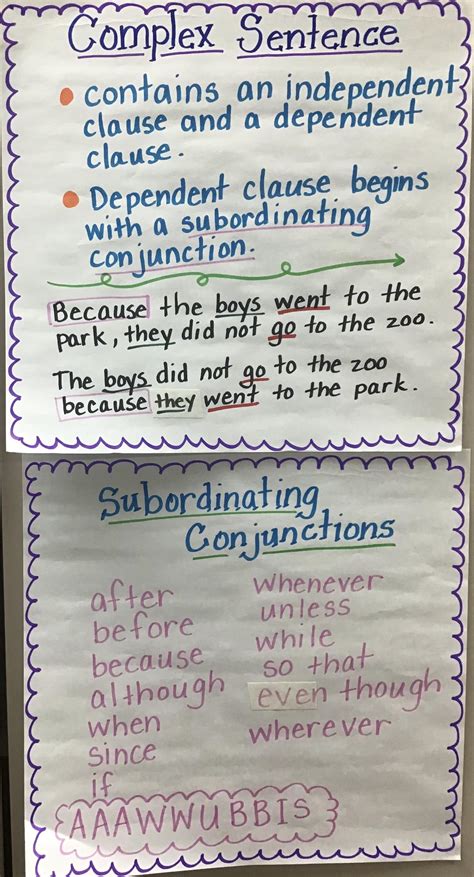 Complex Sentence
• contains an independent
clause and a dependent
clause.
• Dependent clause begins
with a subordinating
conjunction.
Because the boys went to the
park, they did not go to the zoo.
The boys did not go to the zoo
because they went to the park.
Subordinating
Conjunctions
after
before
because
although
when
since
if
whenever
unless
while
so that
even though
wherever
AAAWWUBBIS